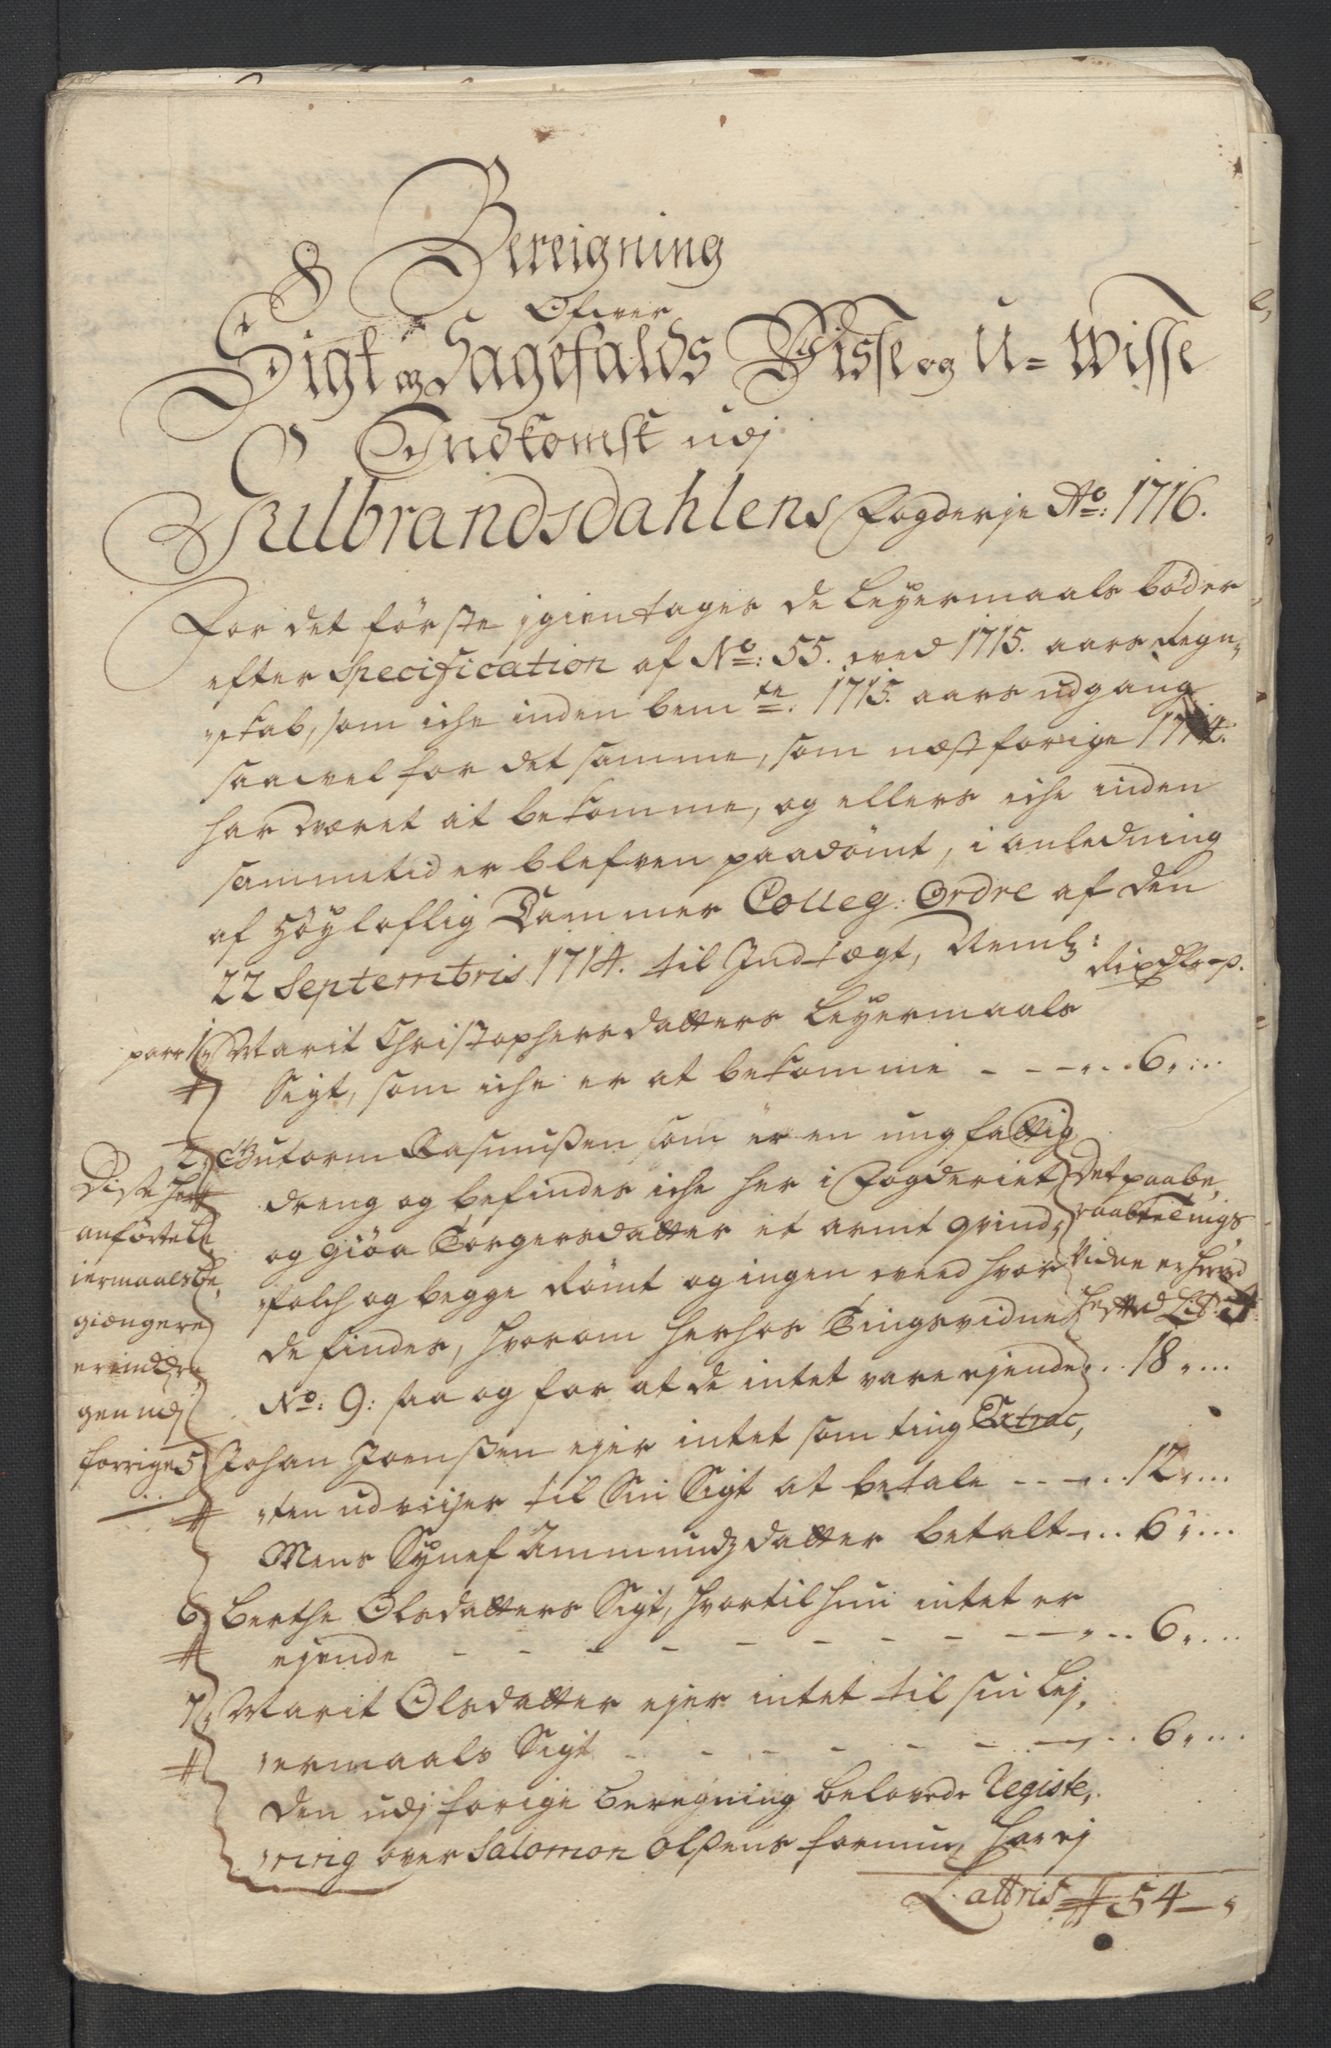 Bereigning
Ofwer
Sigt og Sagefalds Visse og U=Wisse
Indkomst udj
Gulbrandsdahlens Fogderje Ao: 1716.
For det förste igientages de Leyermaals böder
efter Specification af No: 55. ved 1715. aars Regn-
skab, som iche inden bemte. 1715. aars udgang
saavel for det samme, som næst forige 1714.
har været at bekomme, og ellers iche inden
sammetid er blefven paadömt, i anledning
af Höyloflig Cammer Colleg: Ordre af den
22 Septembris 1714. til Indtægt, Neml:
Rixdlr
1. Marit Christophersdatters Leyermaals
Sigt, som iche er at bekomme - - - 6
2. Gutorm Rasmussen som er en ung fattig
dreng og befindes iche her i Fogderiet,
og Giöa Torgersdatter et armt qvind-
folch og begge Römt og ingen veed hvor
de findes, hvorom herhos Tingsvidne
No: 9: saa og for at de intet vare ejende 18
Det paabe-
raabte Tings
Vidne er
5 Johan Joenssen ejer intet som ting Extrac-
ten udviiser til Sin Sigt at betale - - - 12
Mens Synef Ammundzdatter betalt 6
6 Berthe Olsdatters Sigt, hvortil hun intet er
ejende - - - - - - - - - 6
7. Marit Olsdatter ejer intet til sin Lej-
ermaals Sigt - - - - - - 6
Den udj forige beregning belovede Registe-
ring over Salomon Olssens formue har ej
Disse her
anförte Le-
iermaals Be-
giængere
er inddra-
gen udj
forrige
Lattris 54